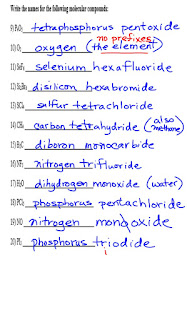 Write the names for the following molecular compounds:
no prefixes
9) P₂O₅ tetraphosphorus pentoxide
10) O₂ oxygen (the element)
11) SeF₆ selenium hexafluoride
12) Si₂Br₆ disilicon hexabromide
13) SCl₄ sulfur tetrachloride
14) CH₄ carbon tetrahydride (also methane)
15) B₂ diboron monocarbide
16) NF₃ nitrogen trifluoride
17) H₂O dihydrogen monoxide (water)
18) PCl₅ phosphorus pentachloride
19) NO nitrogen monoxide
20) PI₃ phosphorus triodide
i